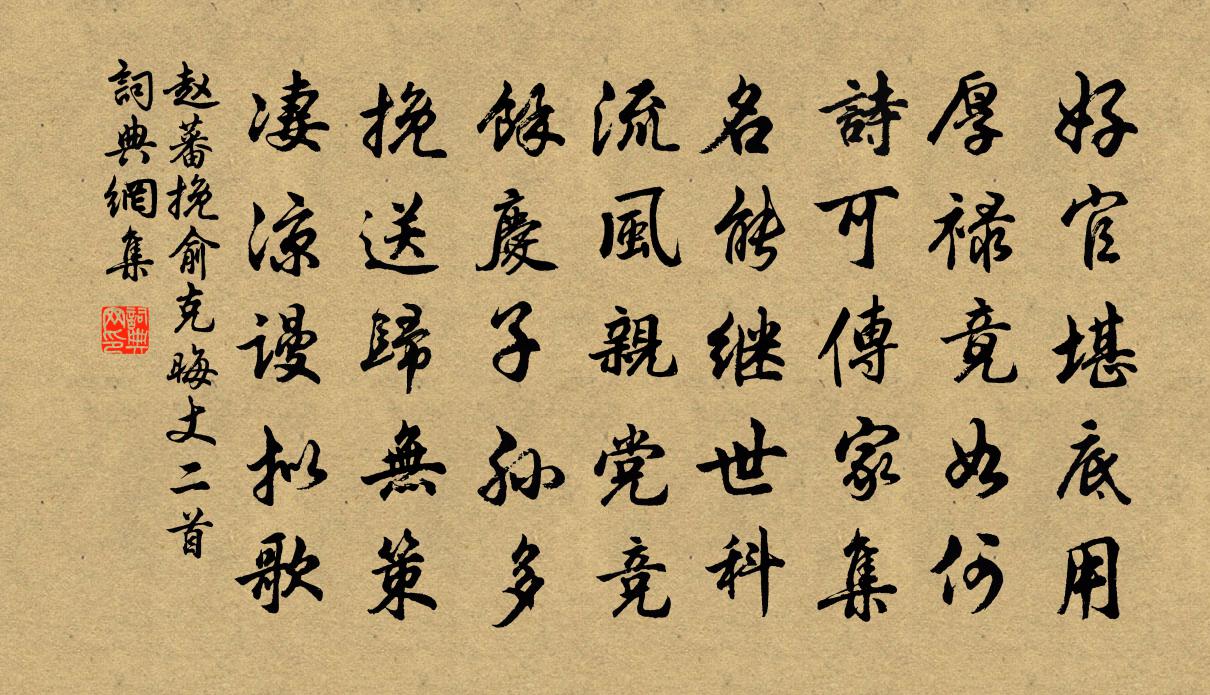 好官堪底用
厚禄竟如何
詩可傳家集
名能继世科
流風親党竞
餘慶子孙多
挽送歸無策
凄凉谩拟歌
赵蕃挽俞克晦丈二首
詞典網集
詞典网印